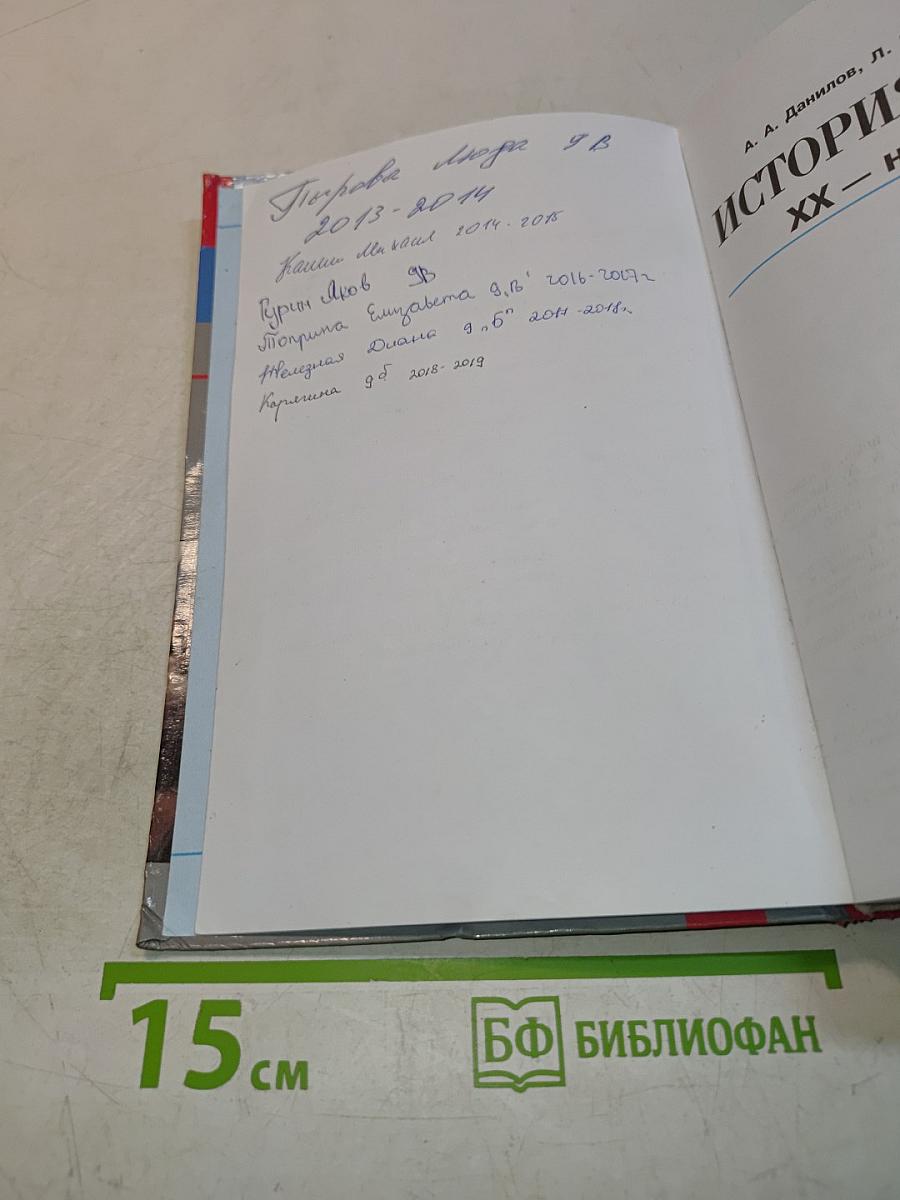 Пырова Люда 9 В
2013-2014
Михаил 2014-2015
Гурин Яков 9В
Топрина Елизавета 9 „В" 2016-2017 г
Железная Диана 9 „Б" 2017-2018 г.
Карягина 9 б 2018-2019
А. А. Данилов, Л.
ИСТОРИЯ
XX — Н
15 см
БФ БИБЛИОФАН